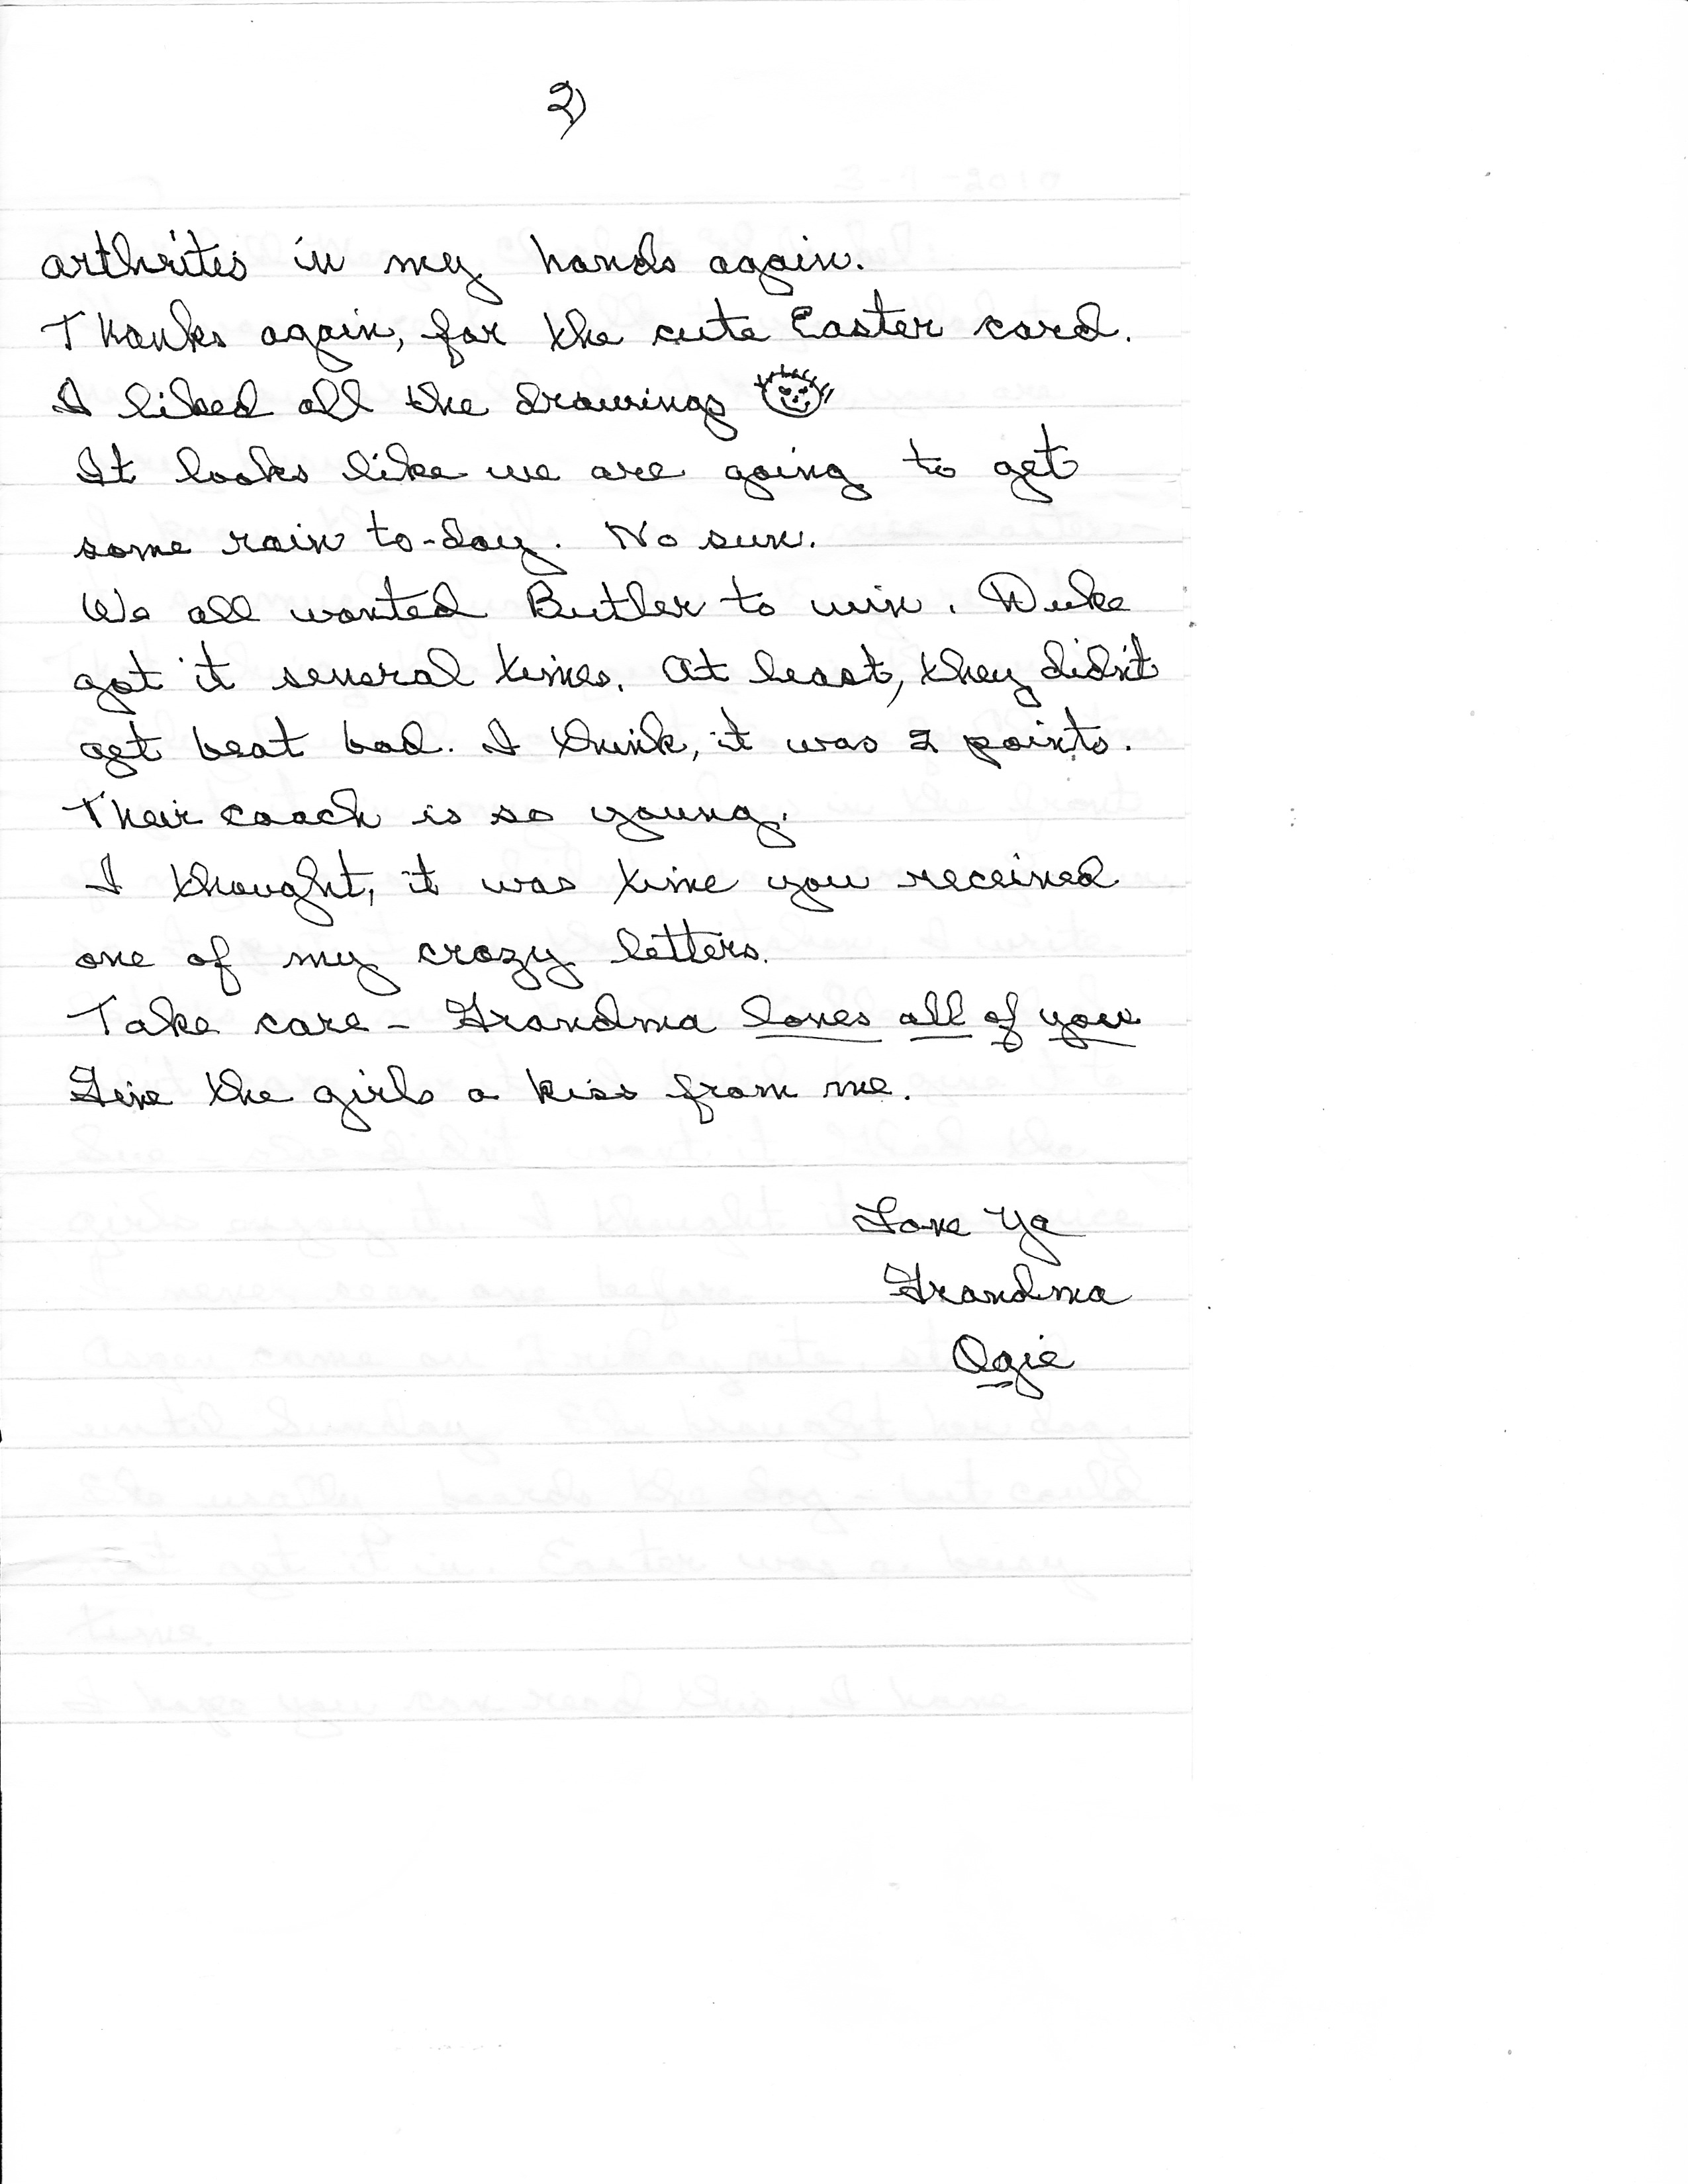 2)
arthrites in my hands again.
Thanks again, for the cute Easter card.
I liked all the drawings
It looks like we are going to get
some rain to-day. No sun.
We all wanted Butler to win. Duke
got it several times. At least, they didn't
get beat bad. I think, it was 2 points.
Their coach is so young.
I thought, it was time you received
one of my crazy letters.
Take care - Grandma loves all of you
Give the girls a kiss from me.
Love Ya
Grandma
Ogie